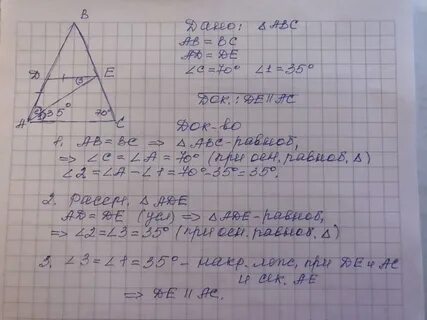 B
Дано: △ABC
AB = BC
AD = DE
∠C = 70° ∠1 = 35°
D
E
3
2
1
35°
70°
A
C
Док.: DE || AC
Док-во
1. AB = BC ⇒ △ABC - равноб,
⇒ ∠C = ∠A = 70° (при осн. равноб, △)
∠2 = ∠A - ∠1 = 70° - 35° = 35°.
2. Рассм, △ADE
AD = DE (усл) ⇒ △ADE - равноб,
⇒ ∠2 = ∠3 = 35° (при осн. равноб, △)
3. ∠3 = ∠1 = 35° - накр. леж, при DE и AC
и сек. AE
⇒ DE || AC.